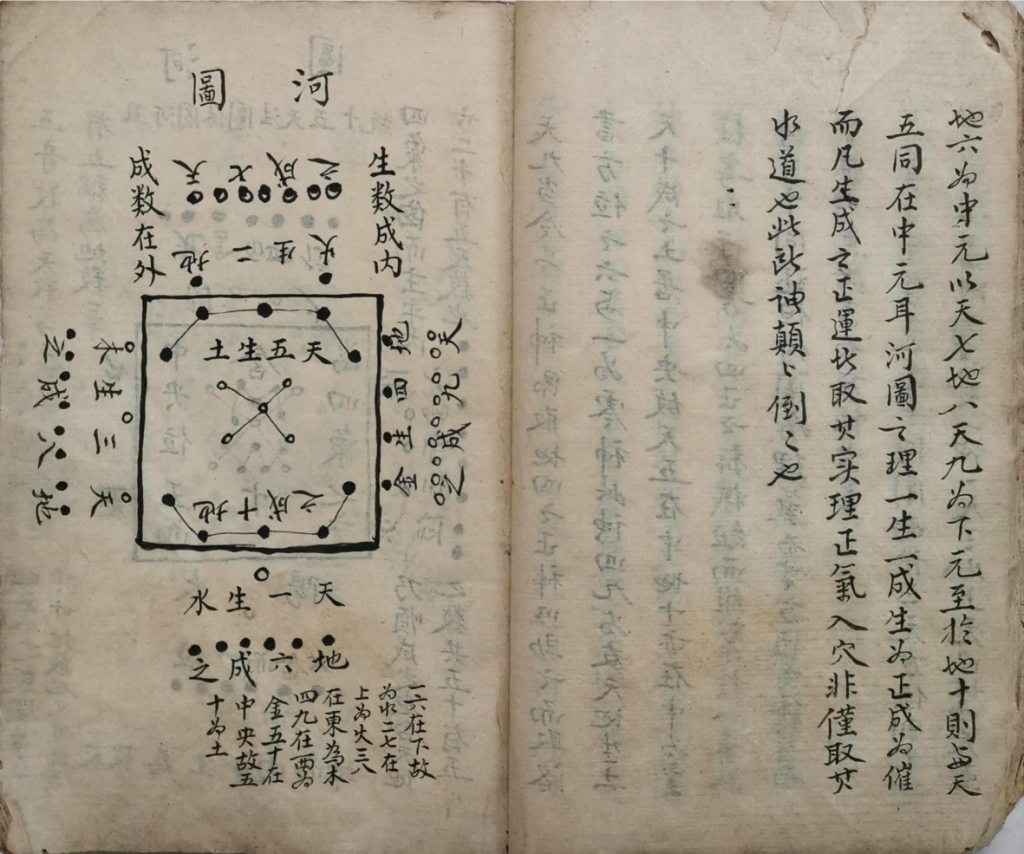 地六为中元以天七地八天九为下元至於地十則与天
五同在中元耳河圖之理一生一成生为正成为催
而凡生成之正運此取其实理正氣入穴非僅取其
水道也此歌訣顛々倒々也
河圖
生数成内
成数在外
天七成之
地二生火
地四生金
天九成之
天三生木
地八成之
天五生土
地十成之
天一生水
地六成之
一六在下故
为水二七在
上为火三八
在東為木
四九在西為
金五十在
中央故五
十为土